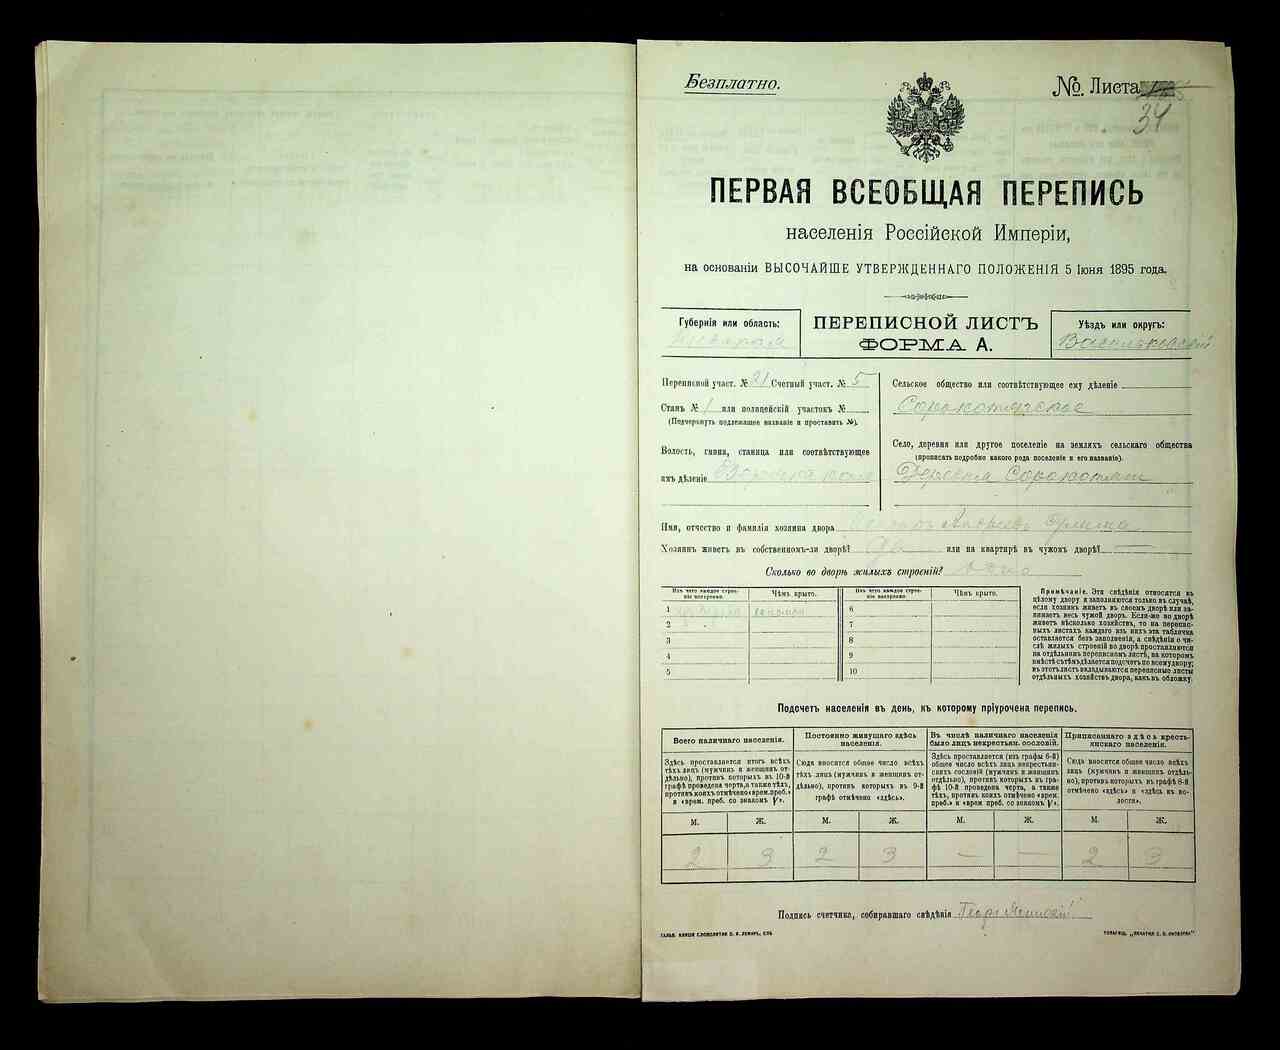 Безплатно.
№. Листа
34
ПЕРВАЯ ВСЕОБЩАЯ ПЕРЕПИСЬ
населенія Россійской Имперіи,
на основаніи ВЫСОЧАЙШЕ УТВЕРЖДЕННАГО ПОЛОЖЕНІЯ 5 Іюня 1895 года.
Губернія или область:
ПЕРЕПИСНОЙ ЛИСТЪ
ФОРМА А.
Уѣздъ или округъ:
Васильковскій
Переписной участ. № 21 Счетный участ. № 5
Станъ № 1 или полицейскій участокъ №
(Подчеркнуть подлежащее названіе и проставить №).
Волость, гмина, станица или соотвѣтствующее
имъ дѣленіе
Сельское общество или соотвѣтствующее ему дѣленіе
Сорокотягское
Село, деревня или другое поселеніе на земляхъ сельскаго общества
(прописать подробно какого рода поселеніе и его названіе).
Деревня Сорокотяги
Имя, отчество и фамилія хозяина двора
Хозяинъ живетъ въ собственномъ-ли дворѣ? Да или на квартирѣ въ чужомъ дворѣ? —
Сколько во дворѣ жилыхъ строеній?
Изъ чего каждое строеніе построено.
Чѣмъ крыто.
Изъ чего каждое строеніе построено.
Чѣмъ крыто.
1 соломой 6
2 7
3 8
4 9
5 10
Примѣчаніе. Эти свѣдѣнія относятся къ
цѣлому двору и заполняются только въ случаѣ,
если хозяинъ живетъ въ своемъ дворѣ или за-
нимаетъ весь чужой дворъ. Если-же во дворѣ
живетъ нѣсколько хозяйствъ, то на перепис-
ныхъ листахъ каждаго изъ нихъ эта табличка
оставляется безъ заполненія, а свѣдѣнія о чи-
слѣ жилыхъ строеній во дворѣ проставляются
на отдѣльномъ переписномъ листѣ, на которомъ
вмѣстѣ съ тѣмъ дѣлается подсчетъ по всему двору;
въ этотъ листъ вкладываются переписные листы
отдѣльныхъ хозяйствъ двора, какъ въ обложку.
Подсчетъ населенія въ день, къ которому пріурочена перепись.
Всего наличнаго населенія.
Здѣсь проставляется итогъ всѣхъ
тѣхъ лицъ (мужчинъ и женщинъ от-
дѣльно), противъ которыхъ въ 10-й
графѣ проведена черта, а также тѣхъ,
противъ коихъ отмѣчено «врем. преб.»
и «врем. преб. со знакомъ V».
Постоянно живущаго здѣсь
населенія.
Сюда вносится общее число всѣхъ
тѣхъ лицъ (мужчинъ и женщинъ от-
дѣльно), противъ которыхъ въ 9-й
графѣ отмѣчено «здѣсь».
Въ числѣ наличнаго населенія
было лицъ некрестьян. сословій.
Здѣсь проставляется (изъ графы 6-й)
общее число всѣхъ лицъ некрестьян-
скихъ сословій (мужчинъ и женщинъ
отдѣльно), противъ которыхъ въ гра-
фѣ 10-й проведена черта, а также
тѣхъ, противъ коихъ отмѣчено «врем.
преб.» и «врем. преб. со знакомъ V».
Приписаннаго здѣсь кресть-
янскаго населенія.
Сюда вносится общее число всѣхъ
лицъ (мужчинъ и женщинъ отдѣль-
но), противъ которыхъ въ графѣ 8-й
отмѣчено «здѣсь» и «здѣсь къ во-
лости».
М. Ж. М. Ж. М. Ж. М. Ж.
2 3 2 3 — — 2 3
Подпись счетчика, собиравшаго свѣдѣнія